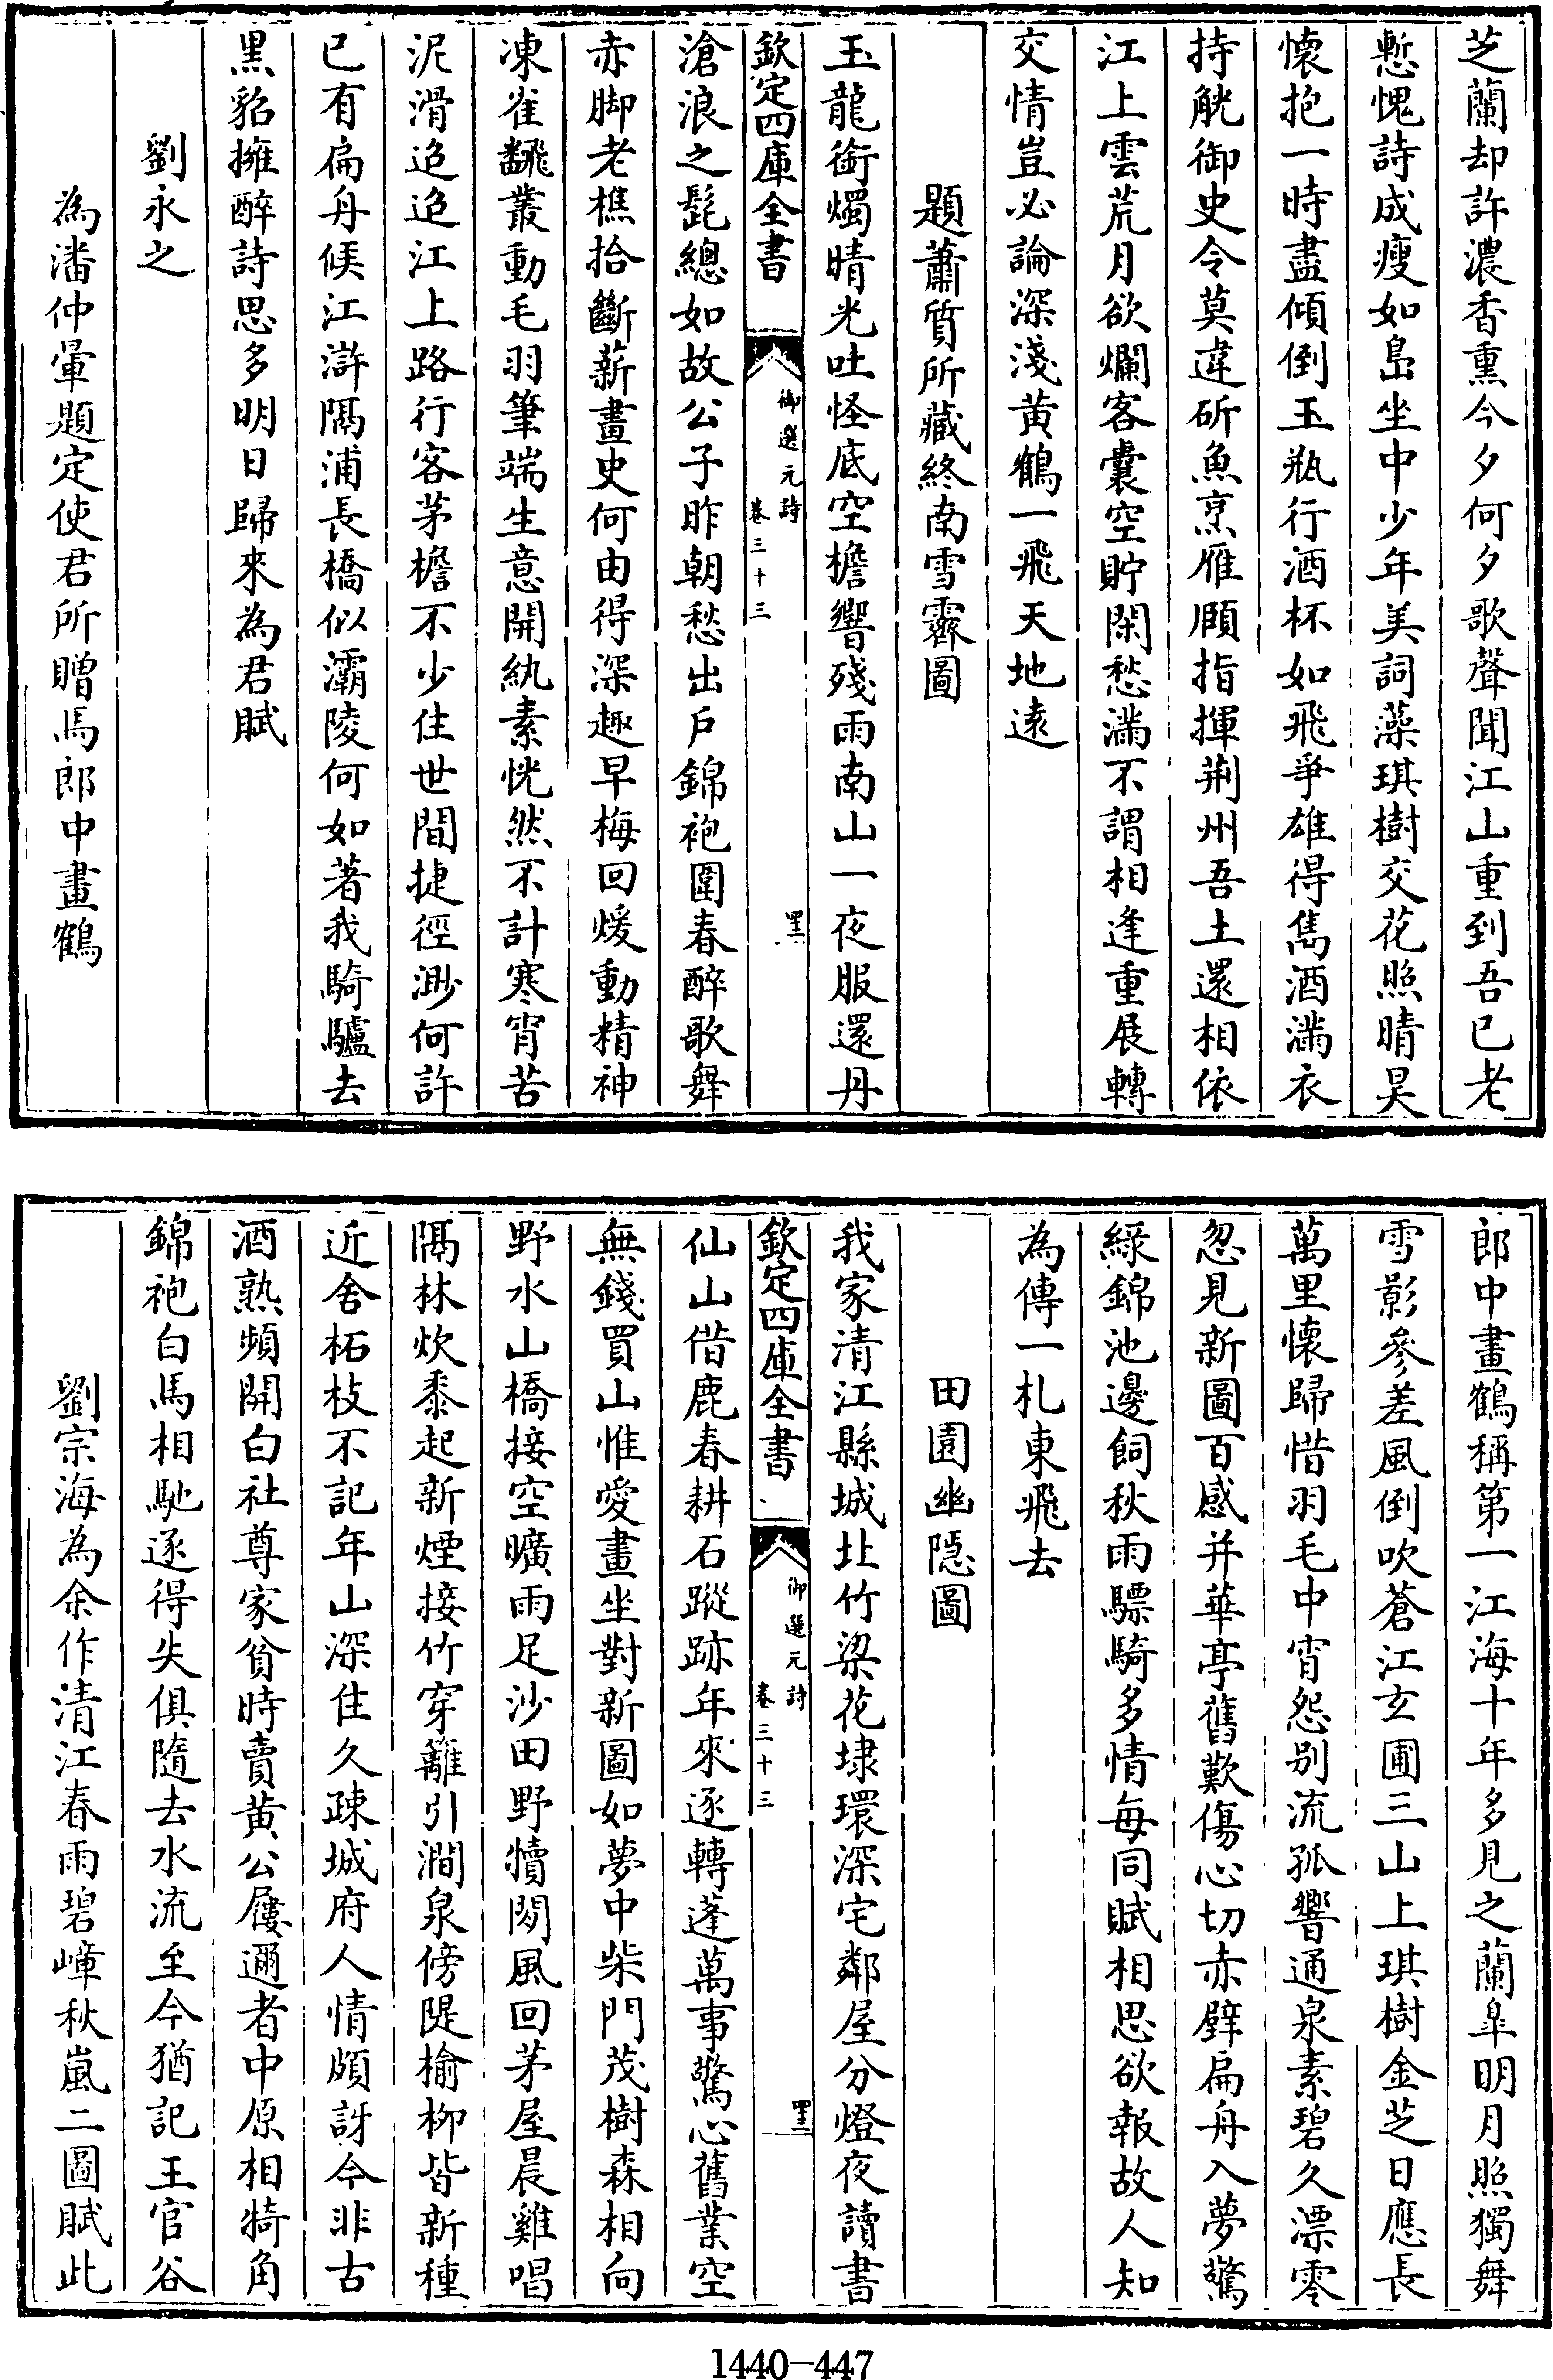 芝蘭却許濃香熏今夕何夕歌聲聞江山重到吾已老
慙愧詩成瘦如島坐中少年美詞藻琪樹交花照晴昊
懐抱一時盡傾倒玉瓶行酒杯如飛爭雄得雋酒滿衣
持觥御史令莫違斫魚烹雁頤指揮荆州吾土還相依
江上雲荒月欲爛客囊空貯閑愁滿不謂相逢重展轉
交情豈必論深淺黄鶴一飛天地逺
題蕭質所藏終南雪霽圖
玉龍銜燭晴光吐怪底空檐響殘雨南山一夜服還丹
欽定四庫全書
御選元詩
卷三十三
滄浪之髭總如故公子昨朝愁出戶錦袍圍春醉歌舞
赤脚老樵拾斷薪畫史何由得深趣早梅回煖動精神
凍雀飜叢動毛羽筆端生意開紈素恍然不計寒宵苦
泥滑迢迢江上路行客茅檐不少住世間捷徑渺何許
已有扁舟候江滸隔浦長橋似灞陵何如著我騎驢去
黒貂擁醉詩思多明日歸來為君賦
劉永之
為潘仲暈題定使君所贈馬郎中畫鶴
郎中畫鶴稱第一江海十年多見之蘭皐明月照獨舞
雪影參差風倒吹蒼江玄圃三山上琪樹金芝日應長
萬里懐歸惜羽毛中宵怨别流孤響通泉素碧久漂零
忽見新圖百感并華亭舊歎傷心切赤壁扁舟入夢驚
緑錦池邊飼秋雨驃騎多情毎同賦相思欲報故人知
為傳一札東飛去
田園幽隠圖
我家清江縣城北竹梁花埭環深宅鄰屋分燈夜讀書
欽定四庫全書
御選元詩
卷三十三
仙山借鹿春耕石蹤跡年來逐轉蓬萬事驚心舊業空
無錢買山惟愛畫坐對新圖如夢中柴門茂樹森相向
野水山橋接空曠雨足沙田野犢閑風回茅屋晨雞唱
隔林炊黍起新煙接竹穿籬引澗泉傍隄榆柳皆新種
近舍柘枝不記年山深住久疎城府人情頗訝今非古
酒熟頻開白社尊家貧時賣黄公屨邇者中原相犄角
錦袍白馬相馳逐得失俱隨去水流至今猶記王官谷
劉宗海為余作清江春雨碧嶂秋嵐二圖賦此
1440-447